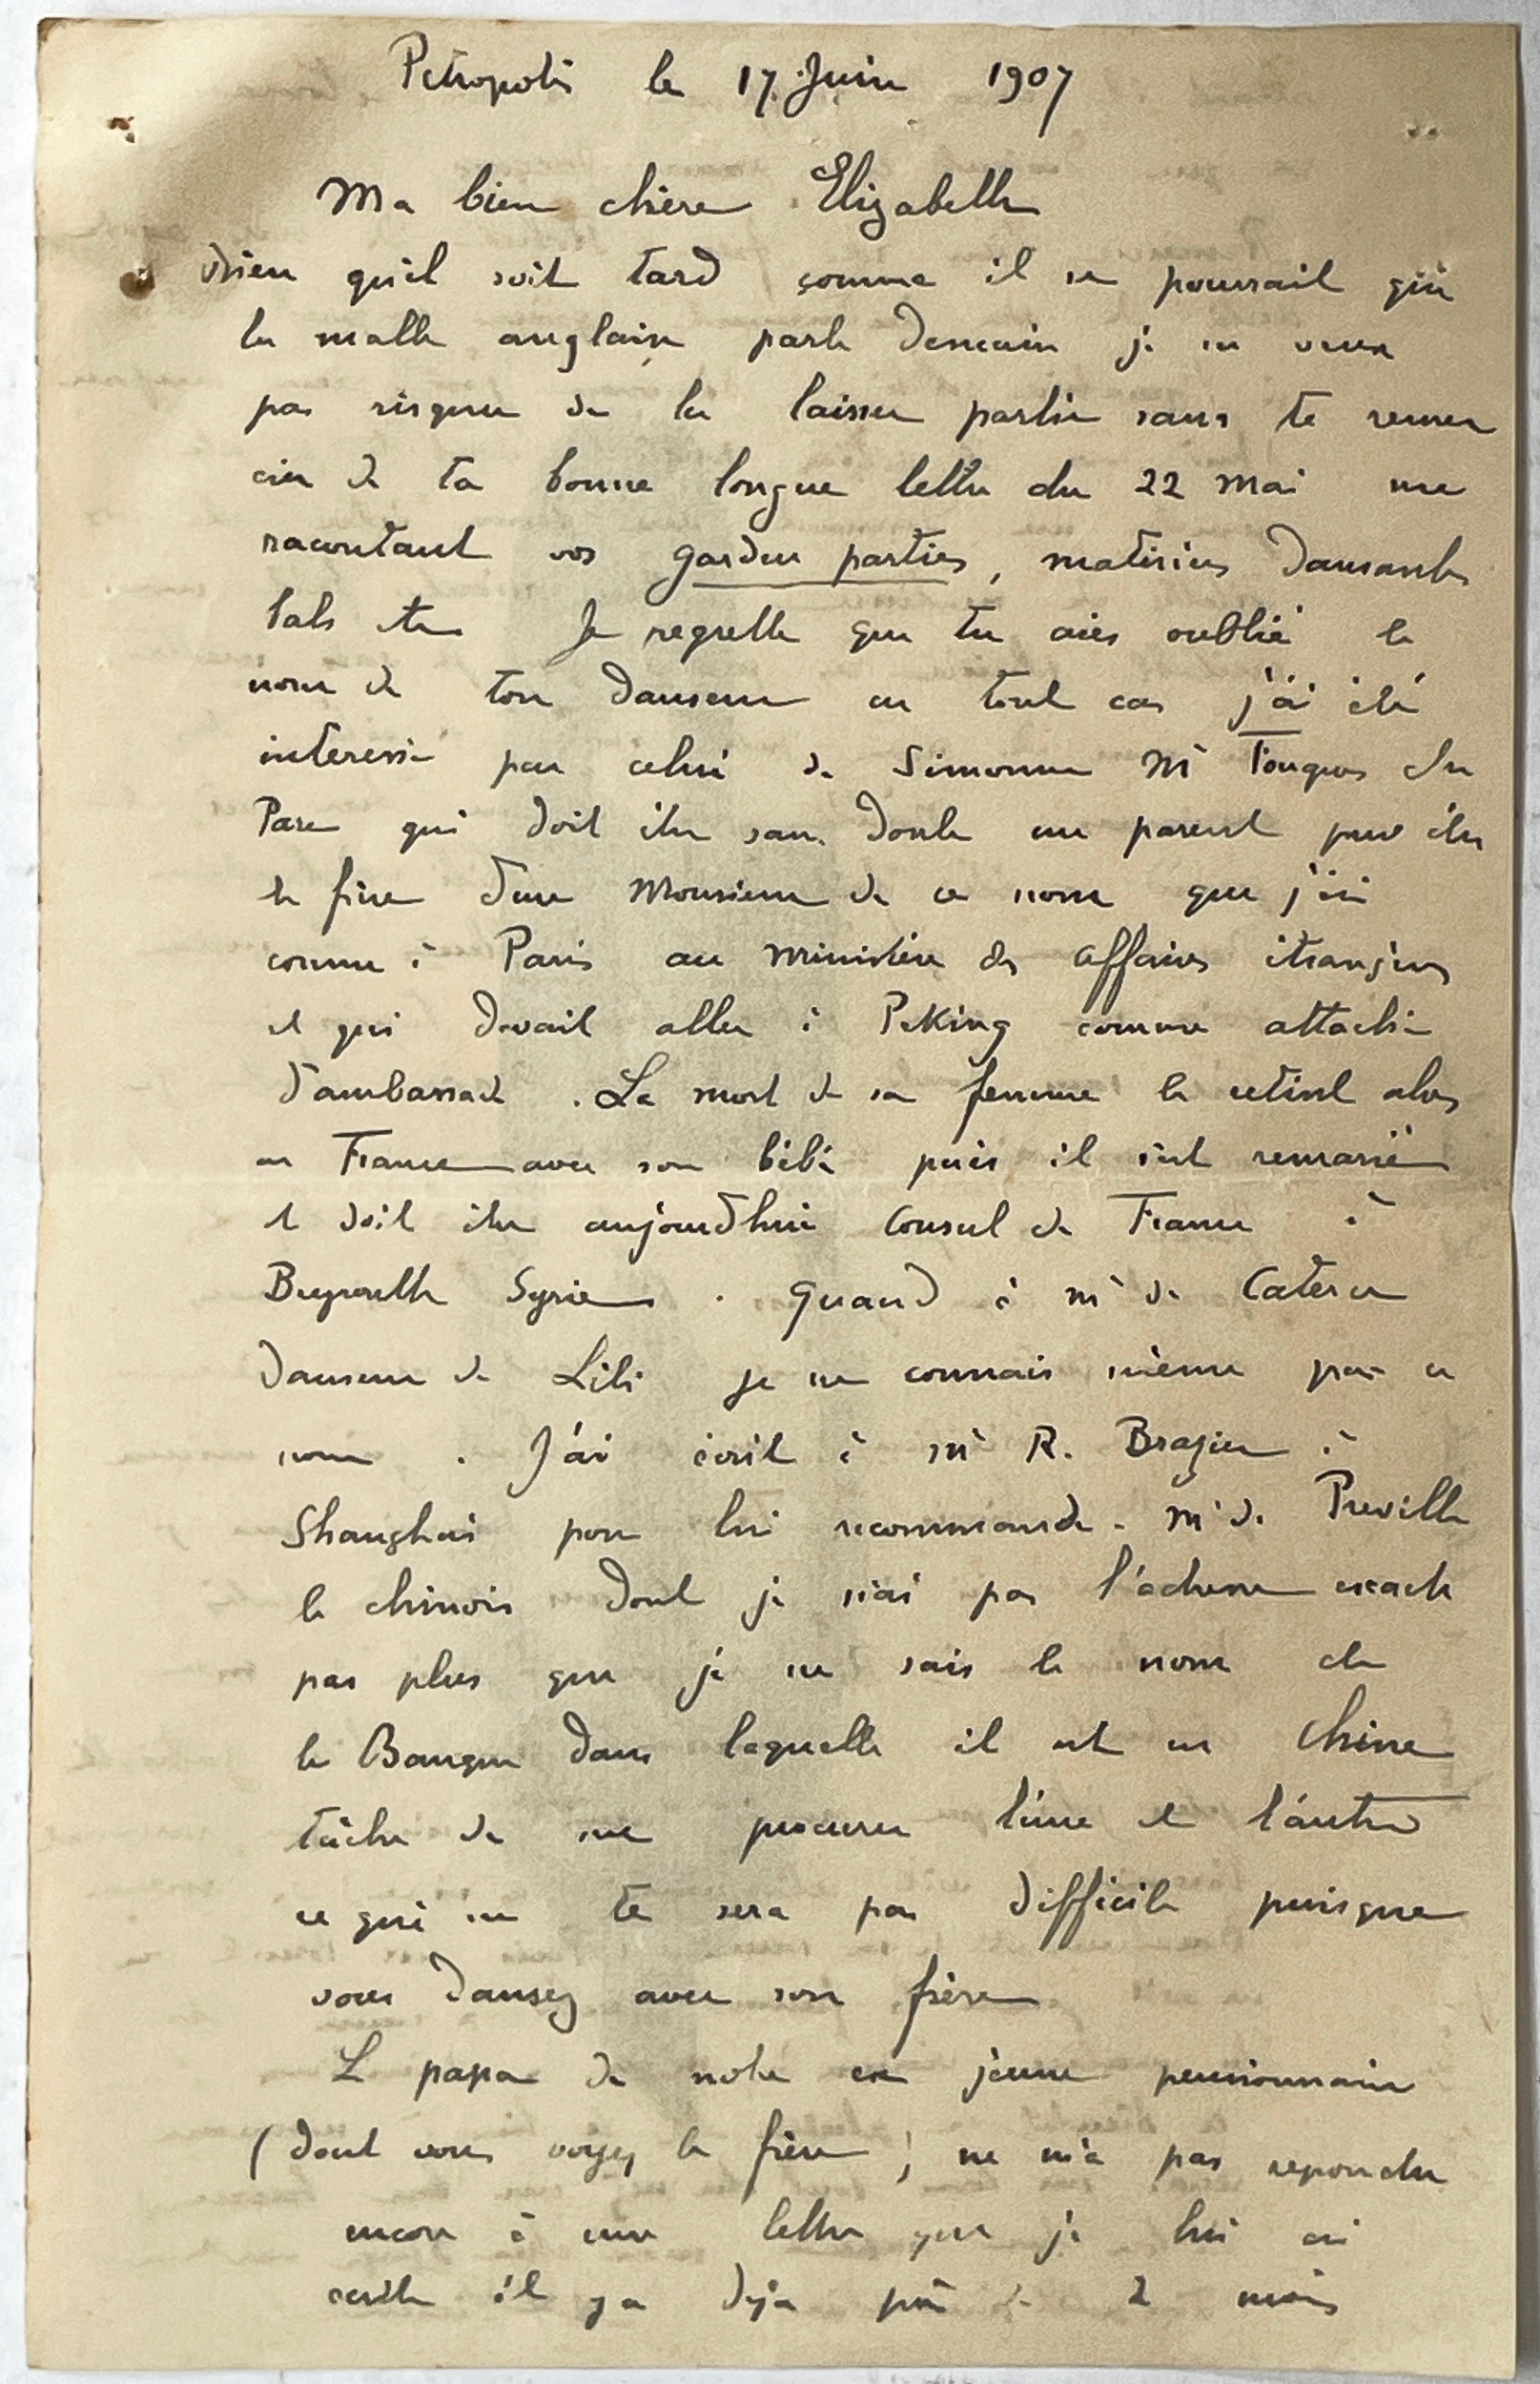 Petropolis le 17 Juin 1907
Ma bien chère Elizabeth
Bien qu'il soit tard comme il se pourrait que
la malle anglaise parte demain je ne veux
pas risquer de la laisser partir sans te remer
cier de ta bonne longue lettre du 22 Mai me
racontant vos garden parties, matinées dansantes
bals etc Je regrette que tu aies oublié le
nom de ton danseur en tout cas j'ai été
interessé par celui de Simonne Mr du
Parc qui doit être sans doute un parent peut être
le frère d'un Monsieur de ce nom que j'ai
connu à Paris au ministère des affaires étrangères
et qui devait aller à Peking comme attaché
d'ambassade. La mort de sa femme le retint alors
en France avec son bébé puis il s'est remarié
et doit être aujourd'hui Consul de France à
Beyrouth Syrie. Quand à Mr de Caters ce
danseur de Lili je ne connais même pas ce
nom. J'ai écrit à Mr R. Brazier à
Shanghai pour lui recommander Mr de Preville
le chinois dont je n'ai pas l'adresse exacte
pas plus que je ne sais le nom de
la Banque dans laquelle il est en Chine
tâche de me procurer l'une et l'autre
ce qui ne te sera pas difficile puisque
vous dansez avec son frère
Le papa de notre ex jeune pensionnaire
(dont vous voyez le frère) ne m'a pas repondu
encore à une lettre que je lui ai
écrite il y a deja près de 2 mois